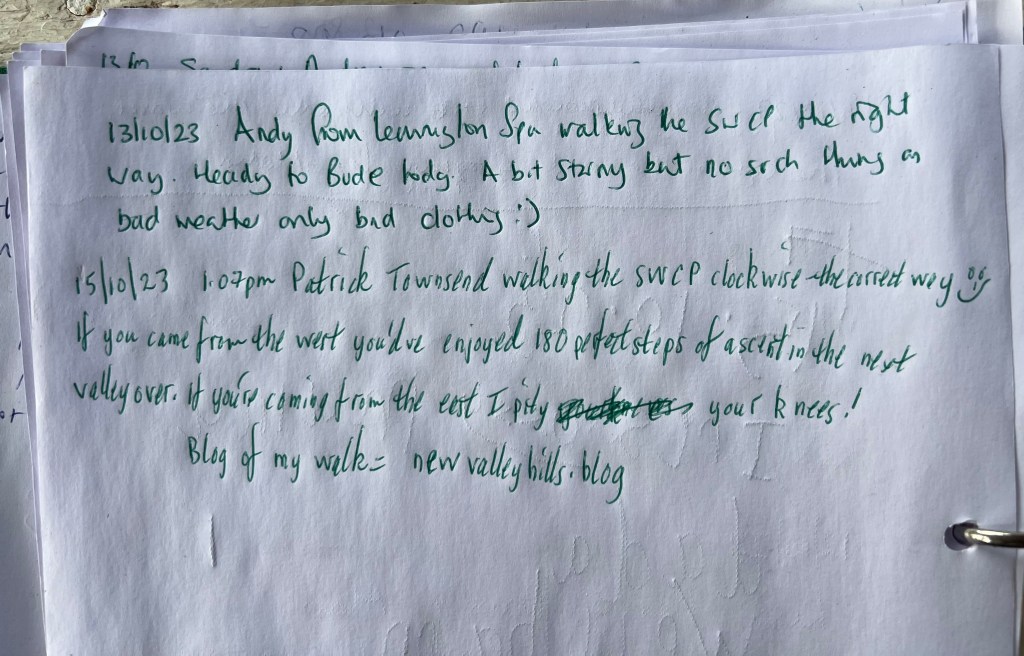 13/10/23 Andy from Leamington Spa walking the SWCP the right
way. Heady to Bude today. A bit stormy but no such thing as
bad weather only bad clothing :)
15/10/23 1.07pm Patrick Townsend walking the SWCP clockwise - the correct way
If you came from the west you'd've enjoyed 180 perfect steps of ascent in the next
valley over. If you're coming from the east I pity your knees!
Blog of my walk = newvalleyhills.blog